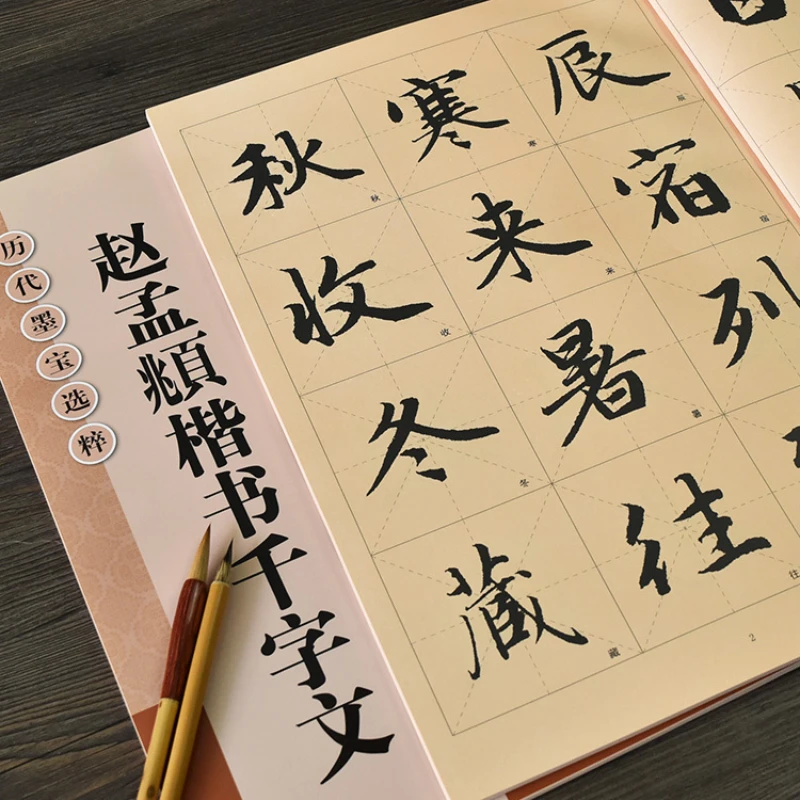 历代墨宝选粹
赵孟頫楷书千字文
辰宿列
寒来暑往
秋收冬藏
宿
寒来暑往
秋收冬藏
2